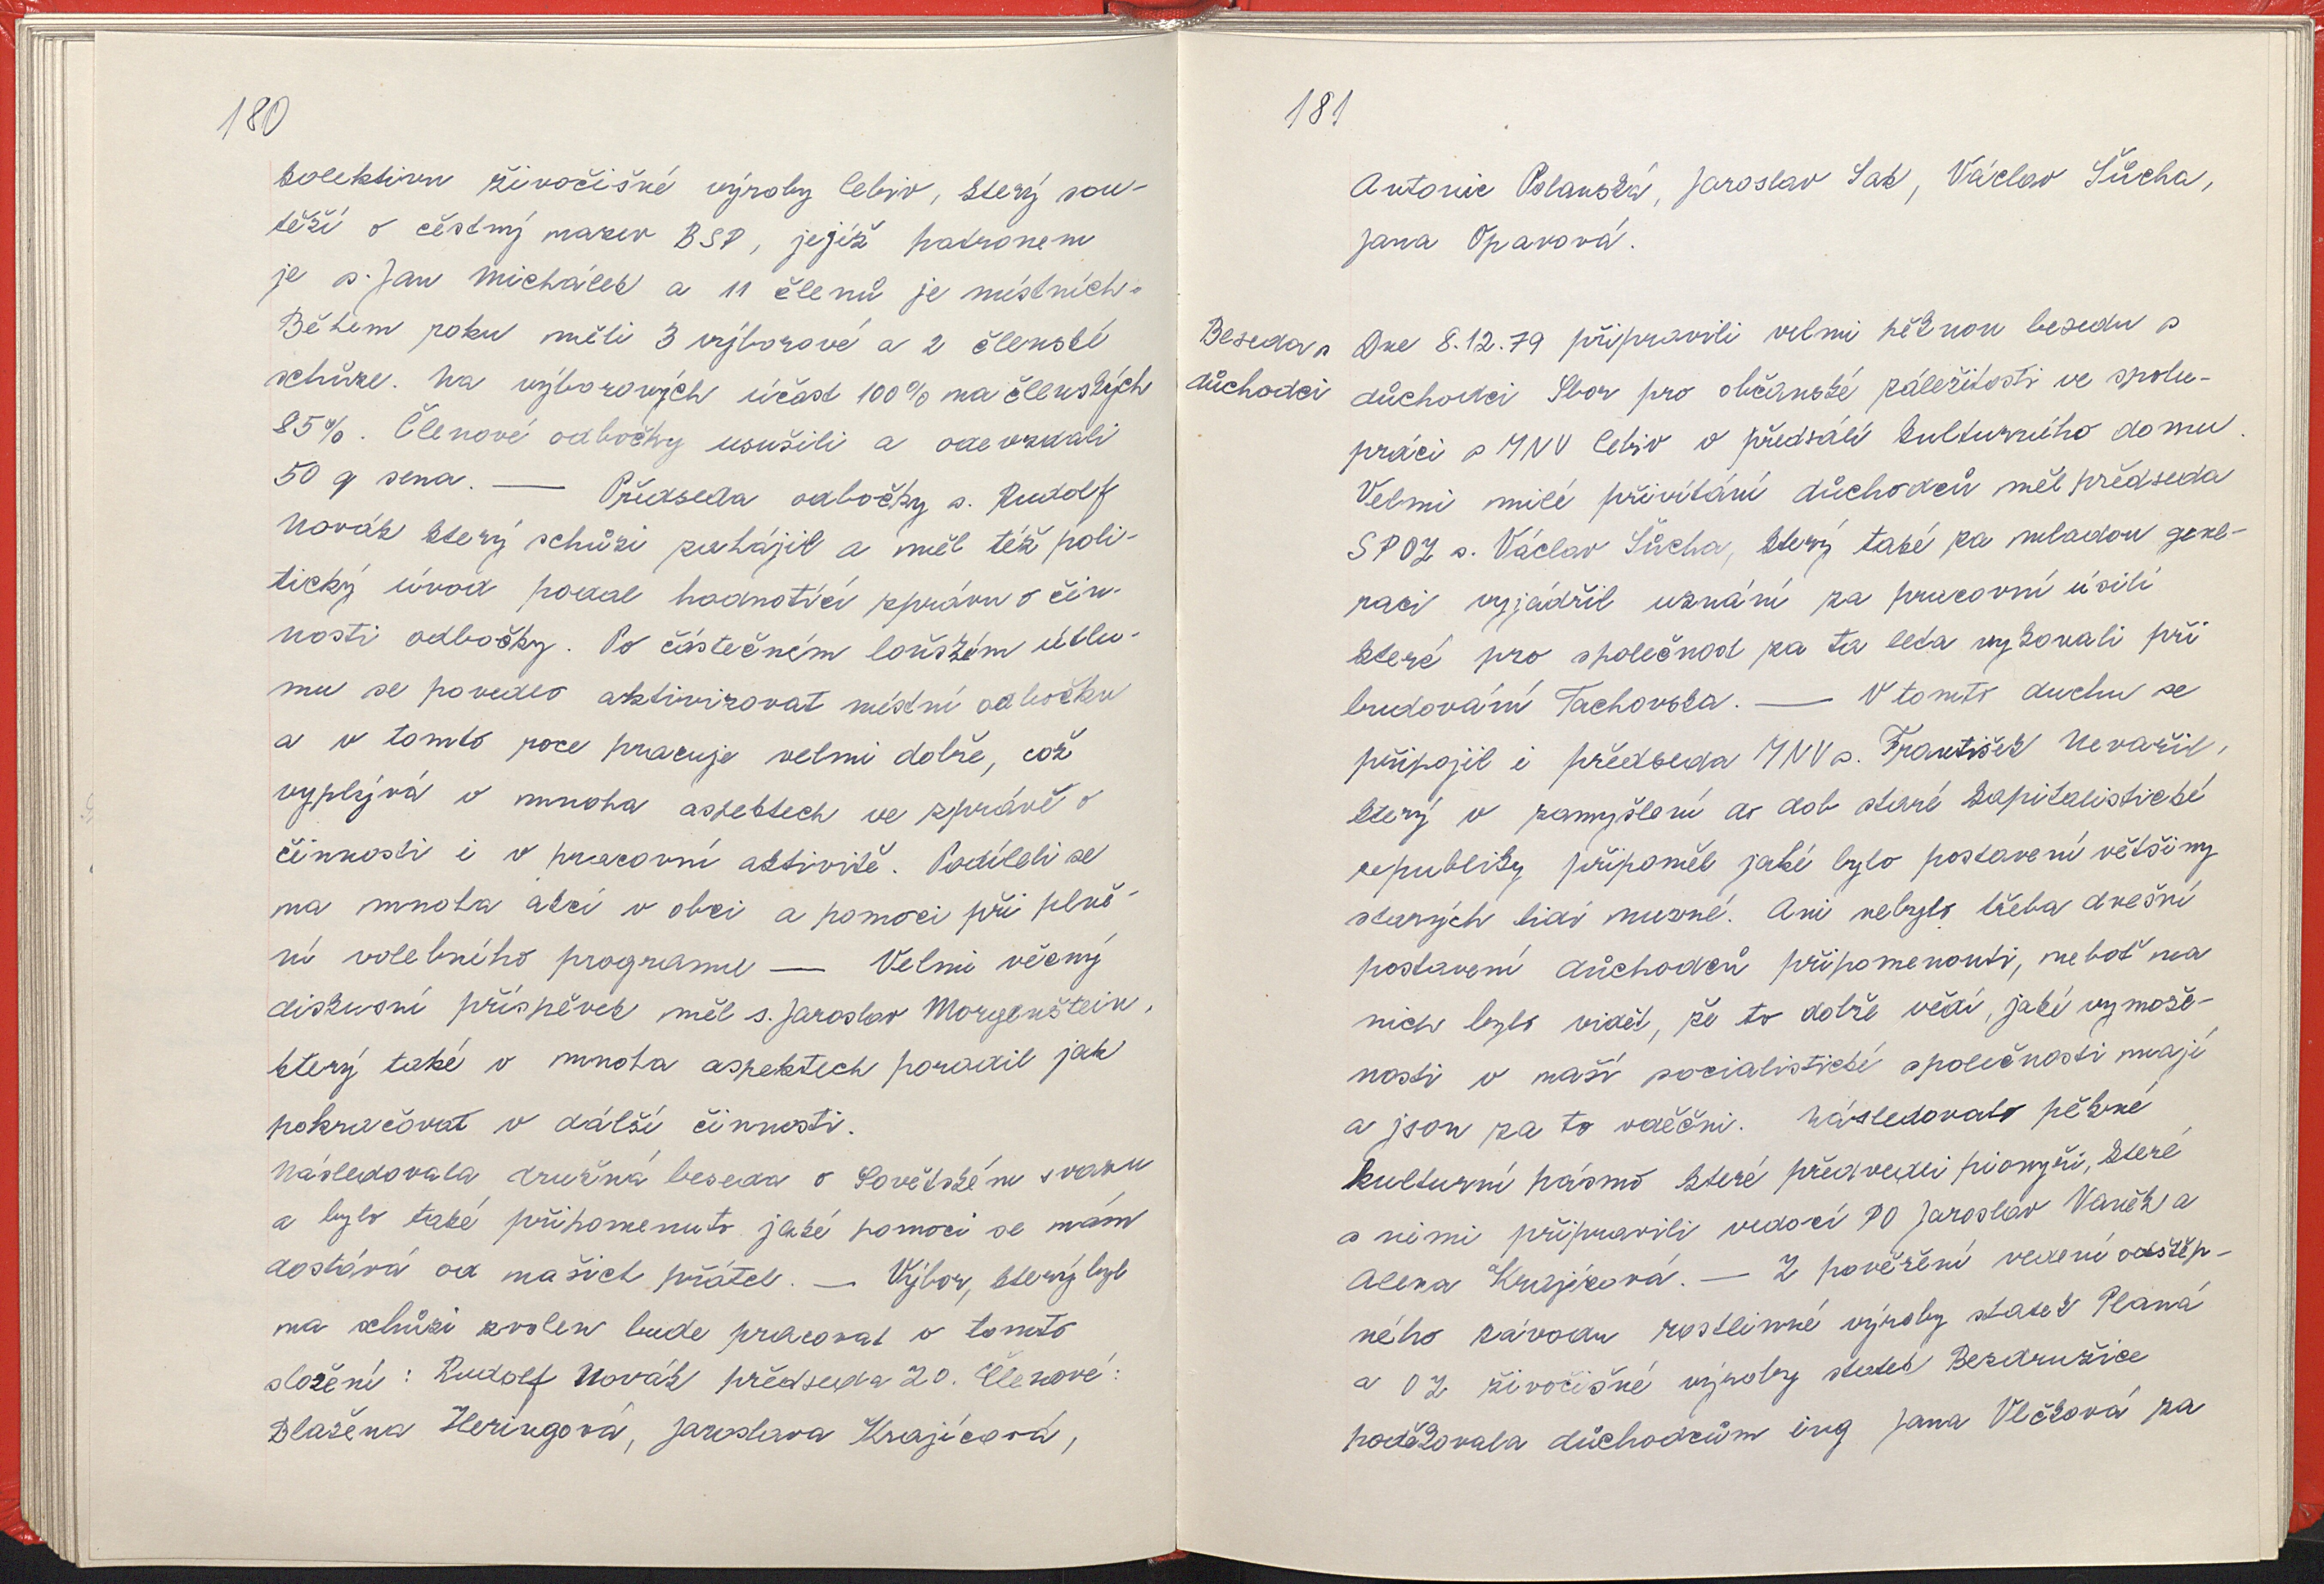 180
kolektivu živočišné výroby Cebiv, který sou-
těží o čestný název BSP, jejíž patronem
je s. Jan Michálek a 11 členů je místních.
Během roku měli 3 výborové a 2 členské
schůze. Na výborových účast 100% na členských
85%. Členové odbočky usušili a odevzdali
50 q sena. — Předseda odbočky s. Rudolf
Novák který schůzi zahájil a měl též poli-
tický úvod podal hodnotící zprávu o čin-
nosti odbočky. Po částečném loňském útlu-
mu se povedlo aktivizovat místní odbočku
a v tomto roce pracuje velmi dobře, což
vyplývá v mnoha aspektech ve zprávě o
činnosti i v pracovní aktivitě. Podíleli se
na mnoha akcí v obci a pomoci při plně-
ní volebního programu — Velmi věcný
diskusní příspěvek měl s. Jaroslav Morgenštein,
který také v mnoha aspektech poradil jak
pokračovat v dálší činnosti.
Následovala družná beseda o Sovětském svazu
a bylo také připomenuto jaké pomoci se nám
dostává od našich přátel. — Výbor, který byl
na schůzi zvolen bude pracovat v tomto
složení: Rudolf Novák předseda ZO. Členové:
Blažena Heringová, Jaroslava Krajícová,
181
Antonie Polanská, Jaroslav Sak, Václav Šůcha,
Jana Opavová.
Beseda s
důchodci
Dne 8.12.79 připravili velmi pěknou besedu s
důchodci Sbor pro občanské záležitosti ve spolu-
práci s MNV Cebiv v předsálí kulturního domu.
Velmi milé přivítání důchodců měl předseda
SPOZ s. Václav Šůcha, který také za mladou gene-
raci vyjádřil uznání za pracovní úsilí
které pro společnost za ta léta vykovali při
budování Tachovska. — V tomto duchu se
připojil i předseda MNV s. František Nevařil,
který v zamyšlení do dob staré kapitalistické
republiky připoměl jaké bylo postavení většiny
starých lidí nuzné. Ani nebylo třeba dnešní
postavení důchodců připomenouti, neboť na
nich bylo vidět, že to dobře vědí, jaké vymože-
nosti v naší socialistické společnosti mají
a jsou za to vděčni. Následovalo pěkné
kulturní pásmo které předvedli pionýři, které
s nimi připravili vedoucí PO Jaroslav Vaněk a
Alena Krajícová. — Z pověření vedení odštěp-
ného závodu rostlinné výroby statek Planá
a OZ živočišné výroby statek Bezdružice
poděkovala důchodcům ing Jana Vlčková za